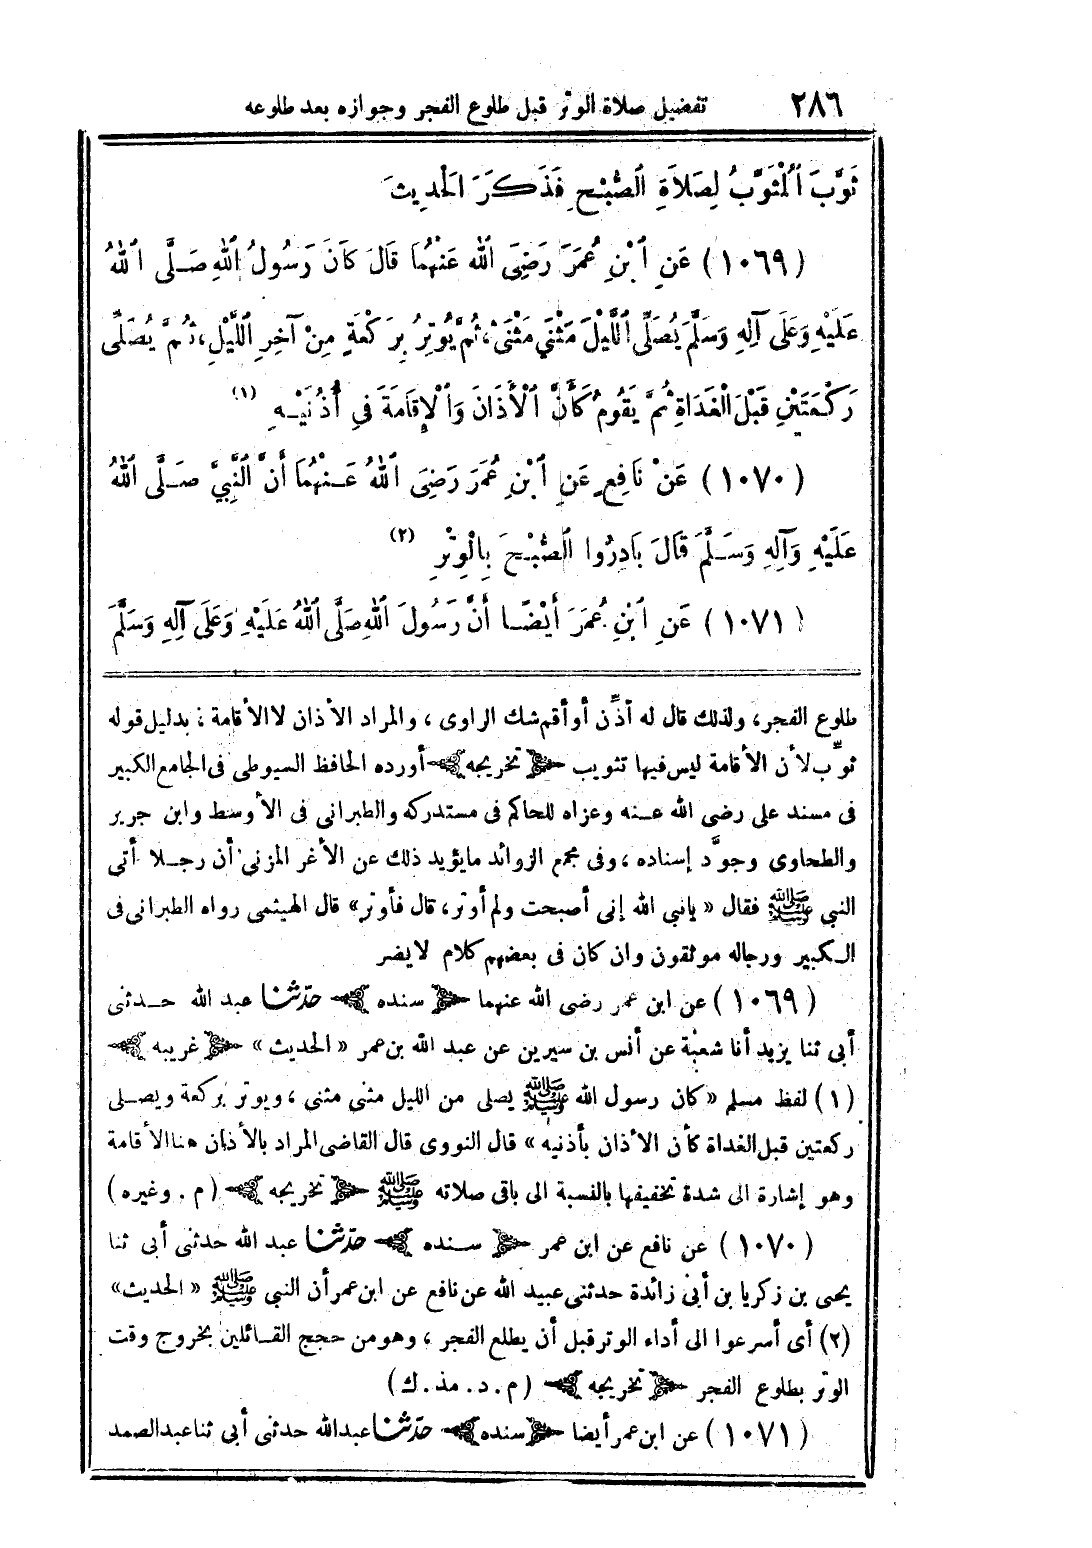 ٢٨٦ تفضيل صلاة الوتر قبل طلوع الفجر وجوازه بعد طلوعه
ثَوَّبَ ٱلْمُثَوِّبُ لِصَلَاةِ ٱلصُّبْحِ فَذَكَرَ الْحَدِيثَ
(١٠٦٩) عَنِ ٱبْنِ عُمَرَ رَضِىَ ٱللهُ عَنْهُمَا قَالَ كَانَ رَسُولُ ٱللهِ صَلَّى ٱللهُ
عَلَيْهِ وَعَلَى آلِهِ وَسَلَّمَ يُصَلِّى ٱللَّيْلَ مَثْنَى مَثْنَى، ثُمَّ يُوتِرُ بِرَكْعَةٍ مِنْ آخِرِ ٱللَّيْلِ، ثُمَّ يُصَلِّى
رَكْعَتَيْنِ قَبْلَ الْغَدَاةِ ثُمَّ يَقُومُ كَأَنَّ ٱلْأَذَانَ وَٱلْإِقَامَةَ فِى أُذُنَيْهِ (١)
(١٠٧٠) عَنْ نَافِعٍ عَنِ ٱبْنِ عُمَرَ رَضِىَ ٱللهُ عَنْهُمَا أَنَّ ٱلنَّبِىَّ صَلَّى ٱللهُ
عَلَيْهِ وَآلِهِ وَسَلَّمَ قَالَ بَادِرُوا ٱلصُّبْحَ بِالْوِتْرِ (٢)
(١٠٧١) عَنِ ٱبْنِ عُمَرَ أَيْضًا أَنَّ رَسُولَ ٱللهِ صَلَّى ٱللهُ عَلَيْهِ وَعَلَى آلِهِ وَسَلَّمَ
طلوع الفجر، ولذلك قال له أذِّن أو أقم شك الراوى، والمراد الأذان لا الأقامة؛ بدليل قوله
ثوَّب لأن الأقامة ليس فيها تثويب ﴿تخريجه﴾ أورده الحافظ السيوطى فى الجامع الكبير
فى مسند على رضى الله عنه وعزاه للحاكم فى مستدركه والطبرانى فى الأوسط وابن جرير
والطحاوى وجوَّد إسناده، وفى مجمع الزوائد مايؤيد ذلك عن الأغر المزنى أن رجلا أتى
النبى ﷺ فقال « يانبى الله إنى أصبحت ولم أوتر، قال فأوتر» قال الهيثمى رواه الطبرانى فى
الكبير ورجاله موثقون وان كان فى بعضهم كلام لايضر
(١٠٦٩) عن ابن عمر رضى الله عنهما ﴿سنده﴾ حدّثنا عبد الله حدثنى
أبى ثنا يزيد أنا شعبة عن أنس بن سيرين عن عبد الله بن عمر « الحديث » ﴿غريبه﴾
(١) لفظ مسلم «كان رسول الله ﷺ يصلى من الليل مثنى مثنى، ويوتر بركعة ويصلى
ركعتين قبل الغداة كأن الأذان بأذنيه» قال النووى قال القاضى المراد بالأذان هنا الأقامة
وهو إشارة الى شدة تخفيفها بالنسبة الى باقى صلاته ﷺ ﴿تخريجه﴾ (م. وغيره)
(١٠٧٠) عن نافع عن ابن عمر ﴿سنده﴾ حدّثنا عبد الله حدثنى أبى ثنا
يحيى بن زكريا بن أبى زائدة حدثنى عبيد الله عن نافع عن ابن عمر أن النبى ﷺ « الحديث»
(٢) أى أسرعوا الى أداء الوتر قبل أن يطلع الفجر، وهو من حجج القائلين بخروج وقت
الوتر بطلوع الفجر ﴿تخريجه﴾ (م. د. مذ. ك)
(١٠٧١) عن ابن عمر أيضا ﴿سنده﴾ حدّثنا عبدالله حدثنى أبى ثنا عبد الصمد